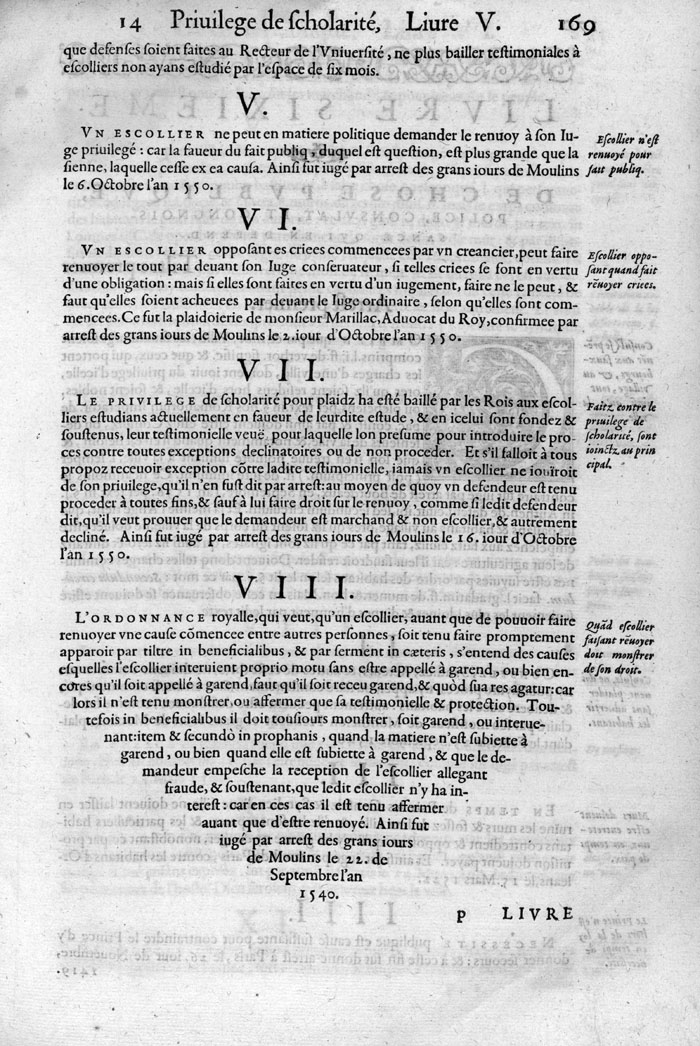 14 Priuilege de scholarité, Liure V. 169
que defenses soient faites au Recteur de l'Vniuersité, ne plus bailler testimoniales à
escolliers non ayans estudié par l'espace de six mois.
V.
VN ESCOLLIER ne peut en matiere politique demander le renuoy à son Iu-
ge priuilegé : car la faueur du fait publiq, duquel est question, est plus grande que la
sienne, laquelle cesse ex ea causa. Ainsi fut iugé par arrest des grans iours de Moulins
le 6. Octobre l'an 1550.
Escollier n'est
renuoyé pour
fait publiq.
VI.
VN ESCOLLIER opposant es criees commencees par vn creancier, peut faire
renuoyer le tout par deuant son Iuge conseruateur, si telles criees se sont en vertu
d'une obligation : mais si elles sont faites en vertu d'un iugement, faire ne le peut, &
faut qu'elles soient acheuees par deuant le Iuge ordinaire, selon qu'elles sont com-
mencees. Ce fut la plaidoierie de monsieur Marillac, Aduocat du Roy, confirmee par
arrest des grans iours de Moulins le 2. iour d'Octobre l'an 1550.
Escollier oppo-
sant quand fait
rēuoyer criees.
VII.
LE PRIVILEGE de scholarité pour plaidz ha esté baillé par les Rois aux escol-
liers estudians actuellement en faueur de leurdite estude, & en icelui sont fondez &
soustenus, leur testimonielle veuë pour laquelle lon presume pour introduire le pro-
ces contre toutes exceptions declinatoires ou de non proceder. Et s'il falloit à tous
propoz receuoir exception cōtre ladite testimonielle, iamais vn escollier ne iouïroit
de son priuilege, qu'il n'en fust dit par arrest: au moyen de quoy vn defendeur est tenu
proceder à toutes fins, & sauf à lui faire droit sur le renuoy, comme si ledit defendeur
dit, qu'il veut prouuer que le demandeur est marchand & non escollier, & autrement
decliné. Ainsi fut iugé par arrest des grans iours de Moulins le 16. iour d'Octobre
l'an 1550.
Faitz contre le
priuilege de
scholarité, sont
ioinctz au prin
cipal.
VIII.
L'ORDONNANCE royalle, qui veut, qu'un escollier, auant que de pouuoir faire
renuoyer vne cause cōmencee entre autres personnes, soit tenu faire promptement
apparoir par tiltre in beneficialibus, & par serment in cæteris, s'entend des causes
esquelles l'escollier interuient proprio motu sans estre appellé à garend, ou bien en-
cores qu'il soit appellé à garend, faut qu'il soit receu garend, & quòd sua res agatur: car
lors il n'est tenu monstrer, ou affermer que sa testimonielle & protection. Tou-
tesfois in beneficialibus il doit tousiours monstrer, soit garend, ou interue-
nant: item & secundò in prophanis, quand la matiere n'est subiette à
garend, ou bien quand elle est subiette à garend, & que le de-
mandeur empesche la reception de l'escollier allegant
fraude, & soustenant, que ledit escollier n'y ha in-
terest: car en ces cas il est tenu affermer
auant que d'estre renuoyé. Ainsi fut
iugé par arrest des grans iours
de Moulins le 22. de
Septembre l'an
1540.
Quād escollier
faisant rēuoyer
doit monstrer
de son droit.
p LIVRE